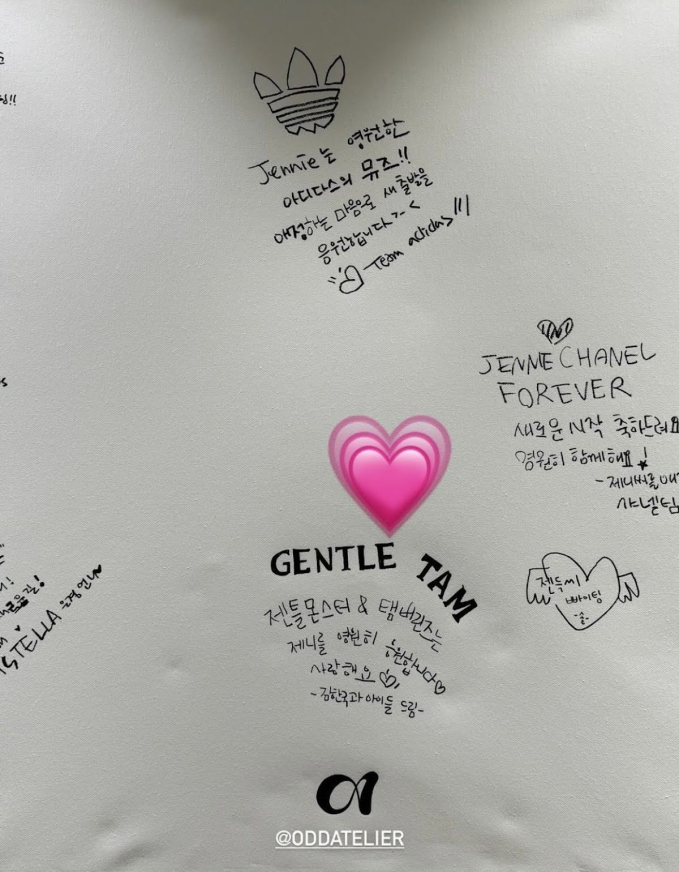 Jennie는 영원한
아디다스의 뮤즈!!
애정하는 마음으로 새 출발을
응원합니다 >-<
Team adidas!!!
JENNIE CHANEL
FOREVER
새로운 시작 축하드려요
영원히 함께해요!
샤넬팀
GENTLE TAM
젠틀몬스터 & 탬버린즈는
제니를 영원히 응원합니다♡
사랑해요
-김한국과 아이들 드림-
젠득씨
빠이팅
-솔-
STELLA
@ODDATELIER